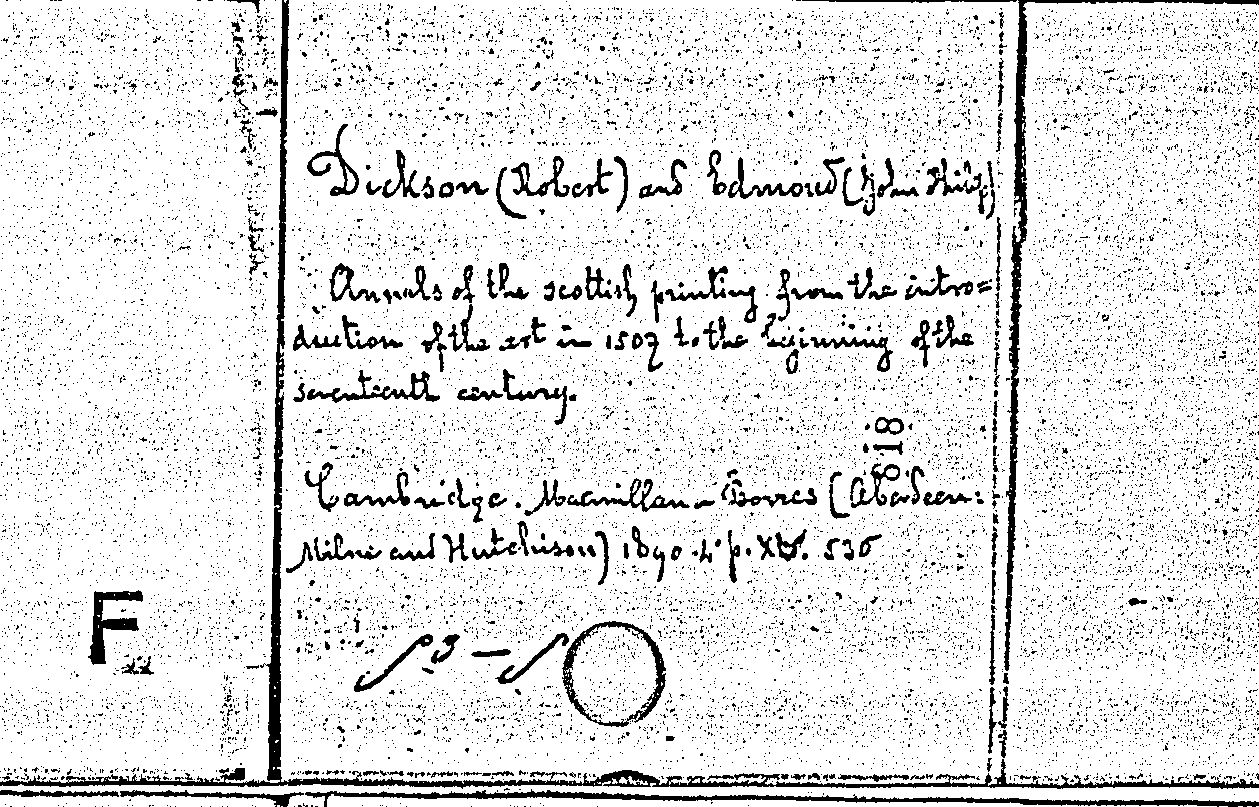 Dickson (Robert) and Edmond (John Philip)
Annals of the scottish printing from the intro=
duction of the art in 1507 to the beginning of the
seventeenth century.
818
Cambridge. Macmillan - Bowes (Aberdeen:
Milne and Hutchison) 1890. 4° p. XV. 530
F